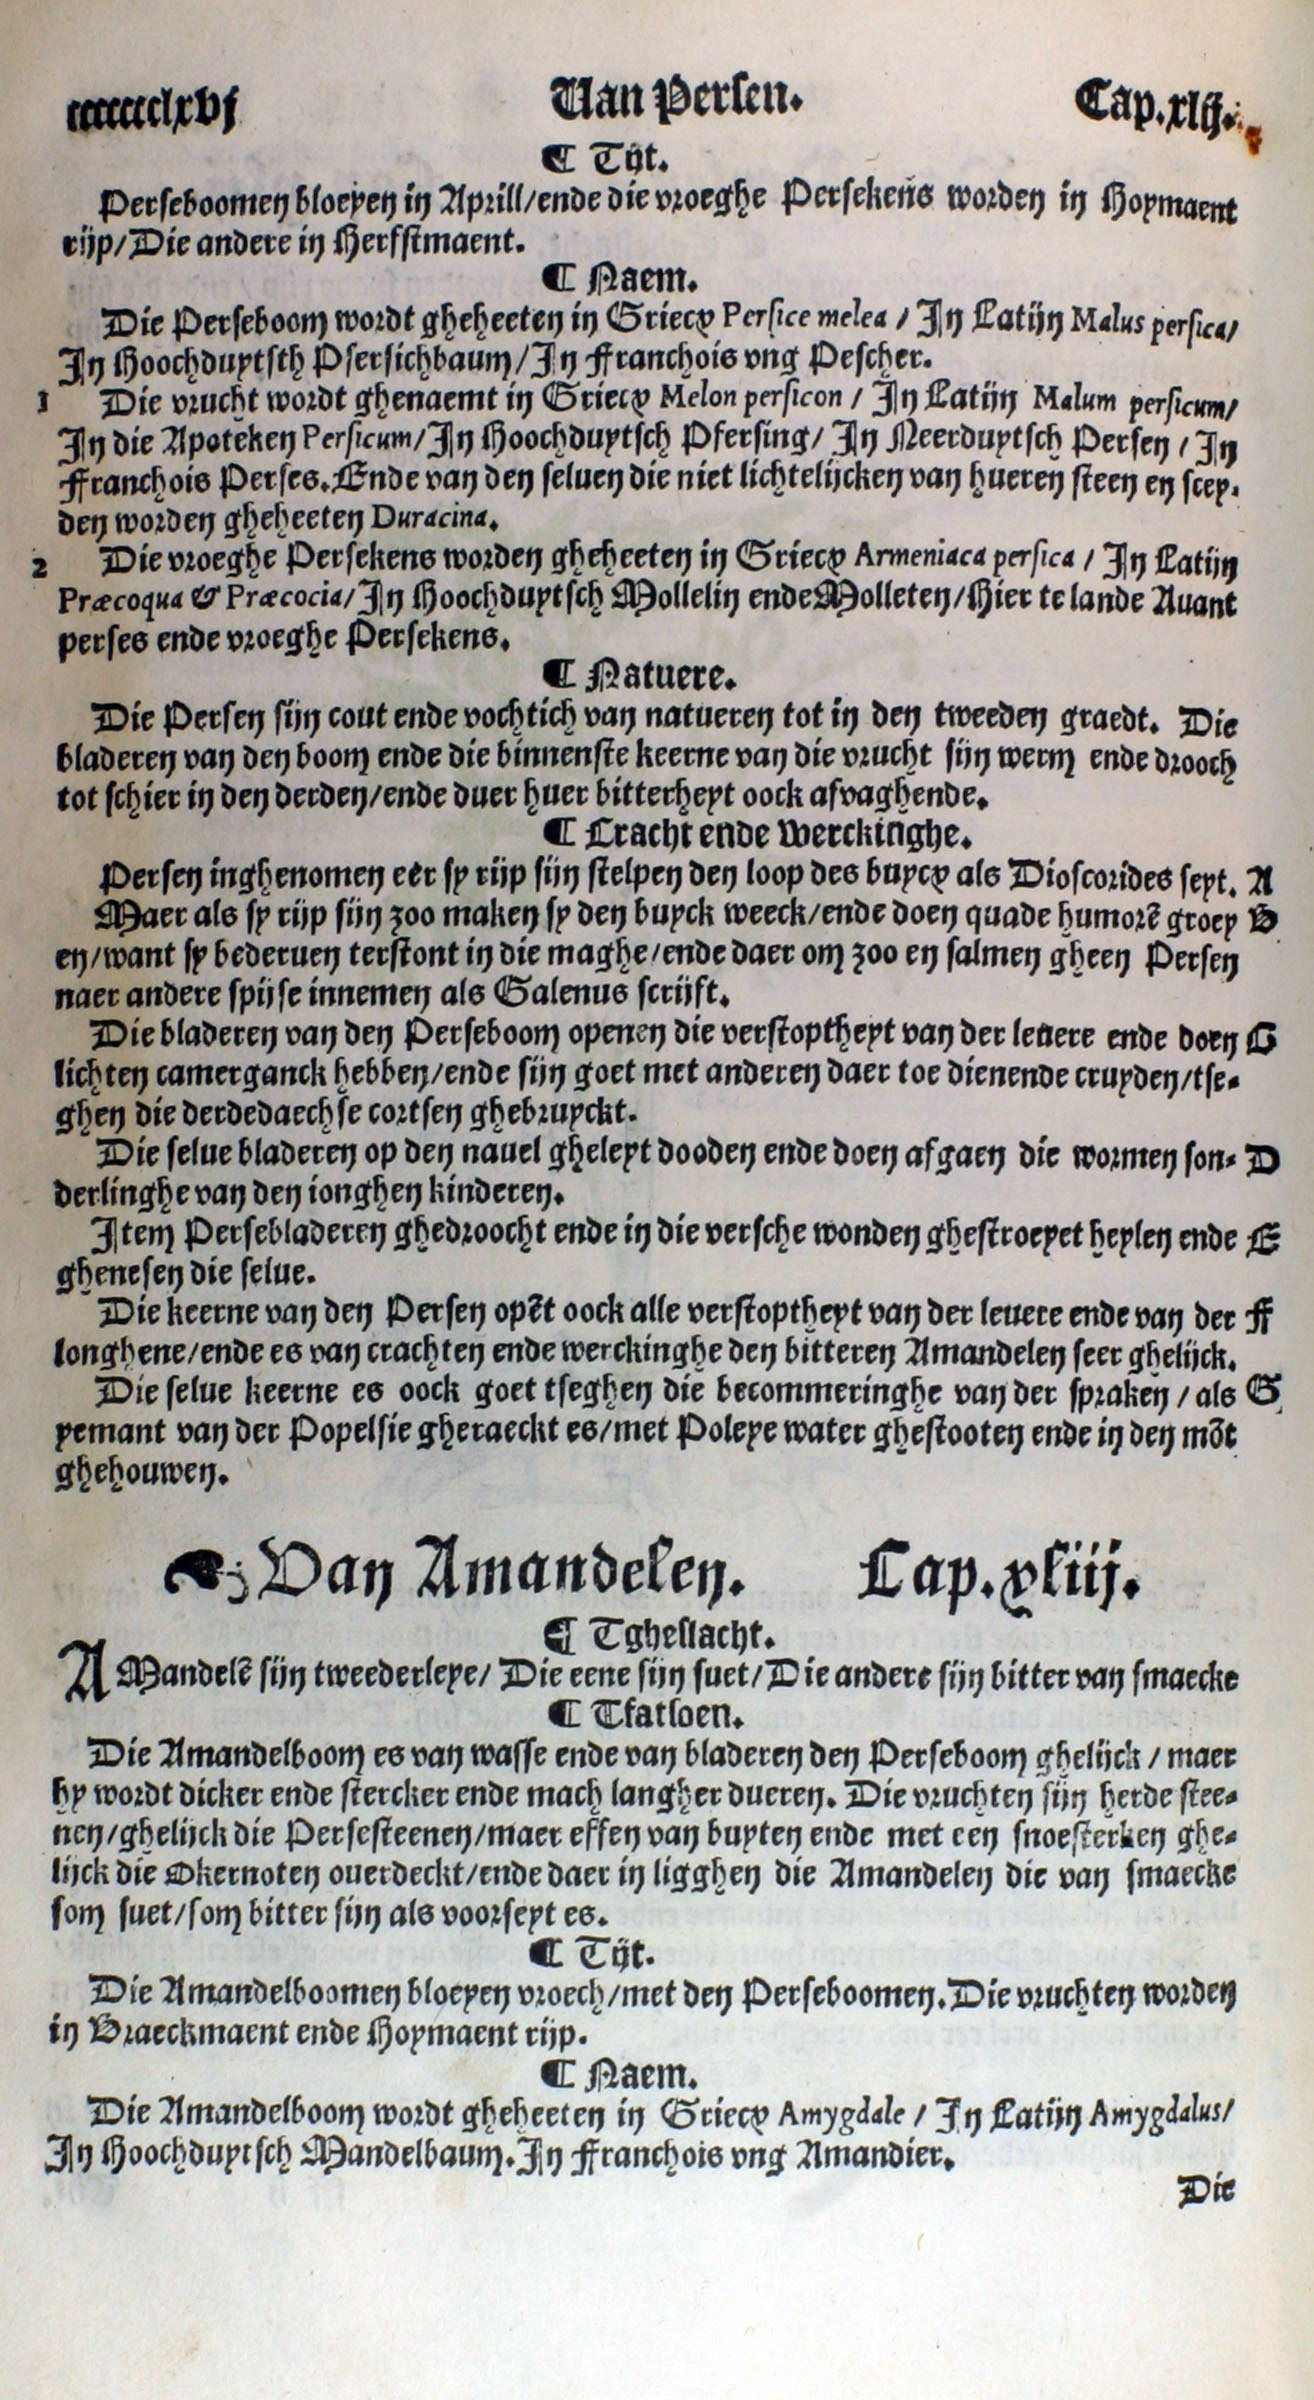 ccccccclxvj Van Persen. Cap. xlij.
¶ Tijt.
Perseboomen bloeyen in Aprill/ende die vroeghe Persekens worden in Hoymaent
rijp/Die andere in Herfstmaent.
¶ Naem.
Die Perseboom wordt gheheeten in Griecx Persice melea / In Latijn Malus persica/
In Hoochduytsth Psersichbaum/In Franchois vng Pescher.
1 Die vrucht wordt ghenaemt in Griecx Melon persicon / In Latijn Malum persicum/
In die Apoteken Persicum/In Hoochduytsch Pfersing/ In Neerduytsch Persen / In
Franchois Perses. Ende van den seluen die niet lichtelijcken van hueren steen en scey.
den worden gheheeten Duracina.
2 Die vroeghe Persekens worden gheheeten in Griecx Armeniaca persica / In Latijn
Præcoqua & Præcocia/In Hoochduytsch Mollelin ende Molleten/Hier te lande Auant
perses ende vroeghe Persekens.
¶ Natuere.
Die Persen sijn cout ende vochtich van natueren tot in den tweeden graedt. Die
bladeren van den boom ende die binnenste keerne van die vrucht sijn werm ende drooch
tot schier in den derden/ende duer huer bitterheyt oock afvaghende.
¶ Cracht ende Werckinghe.
Persen inghenomen eer sy rijp sijn stelpen den loop des buycx als Dioscorides seyt. A
Maer als sy rijp sijn zoo maken sy den buyck weeck/ende doen quade humorẽ groey B
en/want sy bederuen terstont in die maghe/ende daer om zoo en salmen gheen Persen
naer andere spijse innemen als Galenus scrijft.
Die bladeren van den Perseboom openen die verstoptheyt van der leuere ende doen C
lichten camerganck hebben/ende sijn goet met anderen daer toe dienende cruyden/tse-
ghen die derdedaechse cortsen ghebruyckt.
Die selue bladeren op den nauel gheleyt dooden ende doen afgaen die wormen son- D
derlinghe van den ionghen kinderen.
Item Persebladeren ghedroocht ende in die versche wonden ghestroeyet heylen ende E
ghenesen die selue.
Die keerne van den Persen opẽt oock alle verstoptheyt van der leuere ende van der F
longhene/ende es van crachten ende werckinghe den bitteren Amandelen seer ghelijck.
Die selue keerne es oock goet tseghen die becommeringhe van der spraken / als G
yemant van der Popelsie gheraeckt es/met Poleye water ghestooten ende in den mõt
ghehouwen.
Van Amandelen. Cap. xliij.
¶ Tgheslacht.
AMandelẽ sijn tweederleye/ Die eene sijn suet/Die andere sijn bitter van smaecke
¶ Tfatsoen.
Die Amandelboom es van wasse ende van bladeren den Perseboom ghelijck / maer
hy wordt dicker ende stercker ende mach langher dueren. Die vruchten sijn herde stee-
nen/ghelijck die Persesteenen/maer effen van buyten ende met een snoesterken ghe-
lijck die Okernoten ouerdeckt/ende daer in ligghen die Amandelen die van smaecke
som suet/som bitter sijn als voorseyt es.
¶ Tijt.
Die Amandelboomen bloeyen vroech/met den Perseboomen. Die vruchten worden
in Braeckmaent ende Hoymaent rijp.
¶ Naem.
Die Amandelboom wordt gheheeten in Griecx Amygdale / In Latijn Amygdalus/
In Hoochduytsch Mandelbaum. In Franchois vng Amandier.
Die